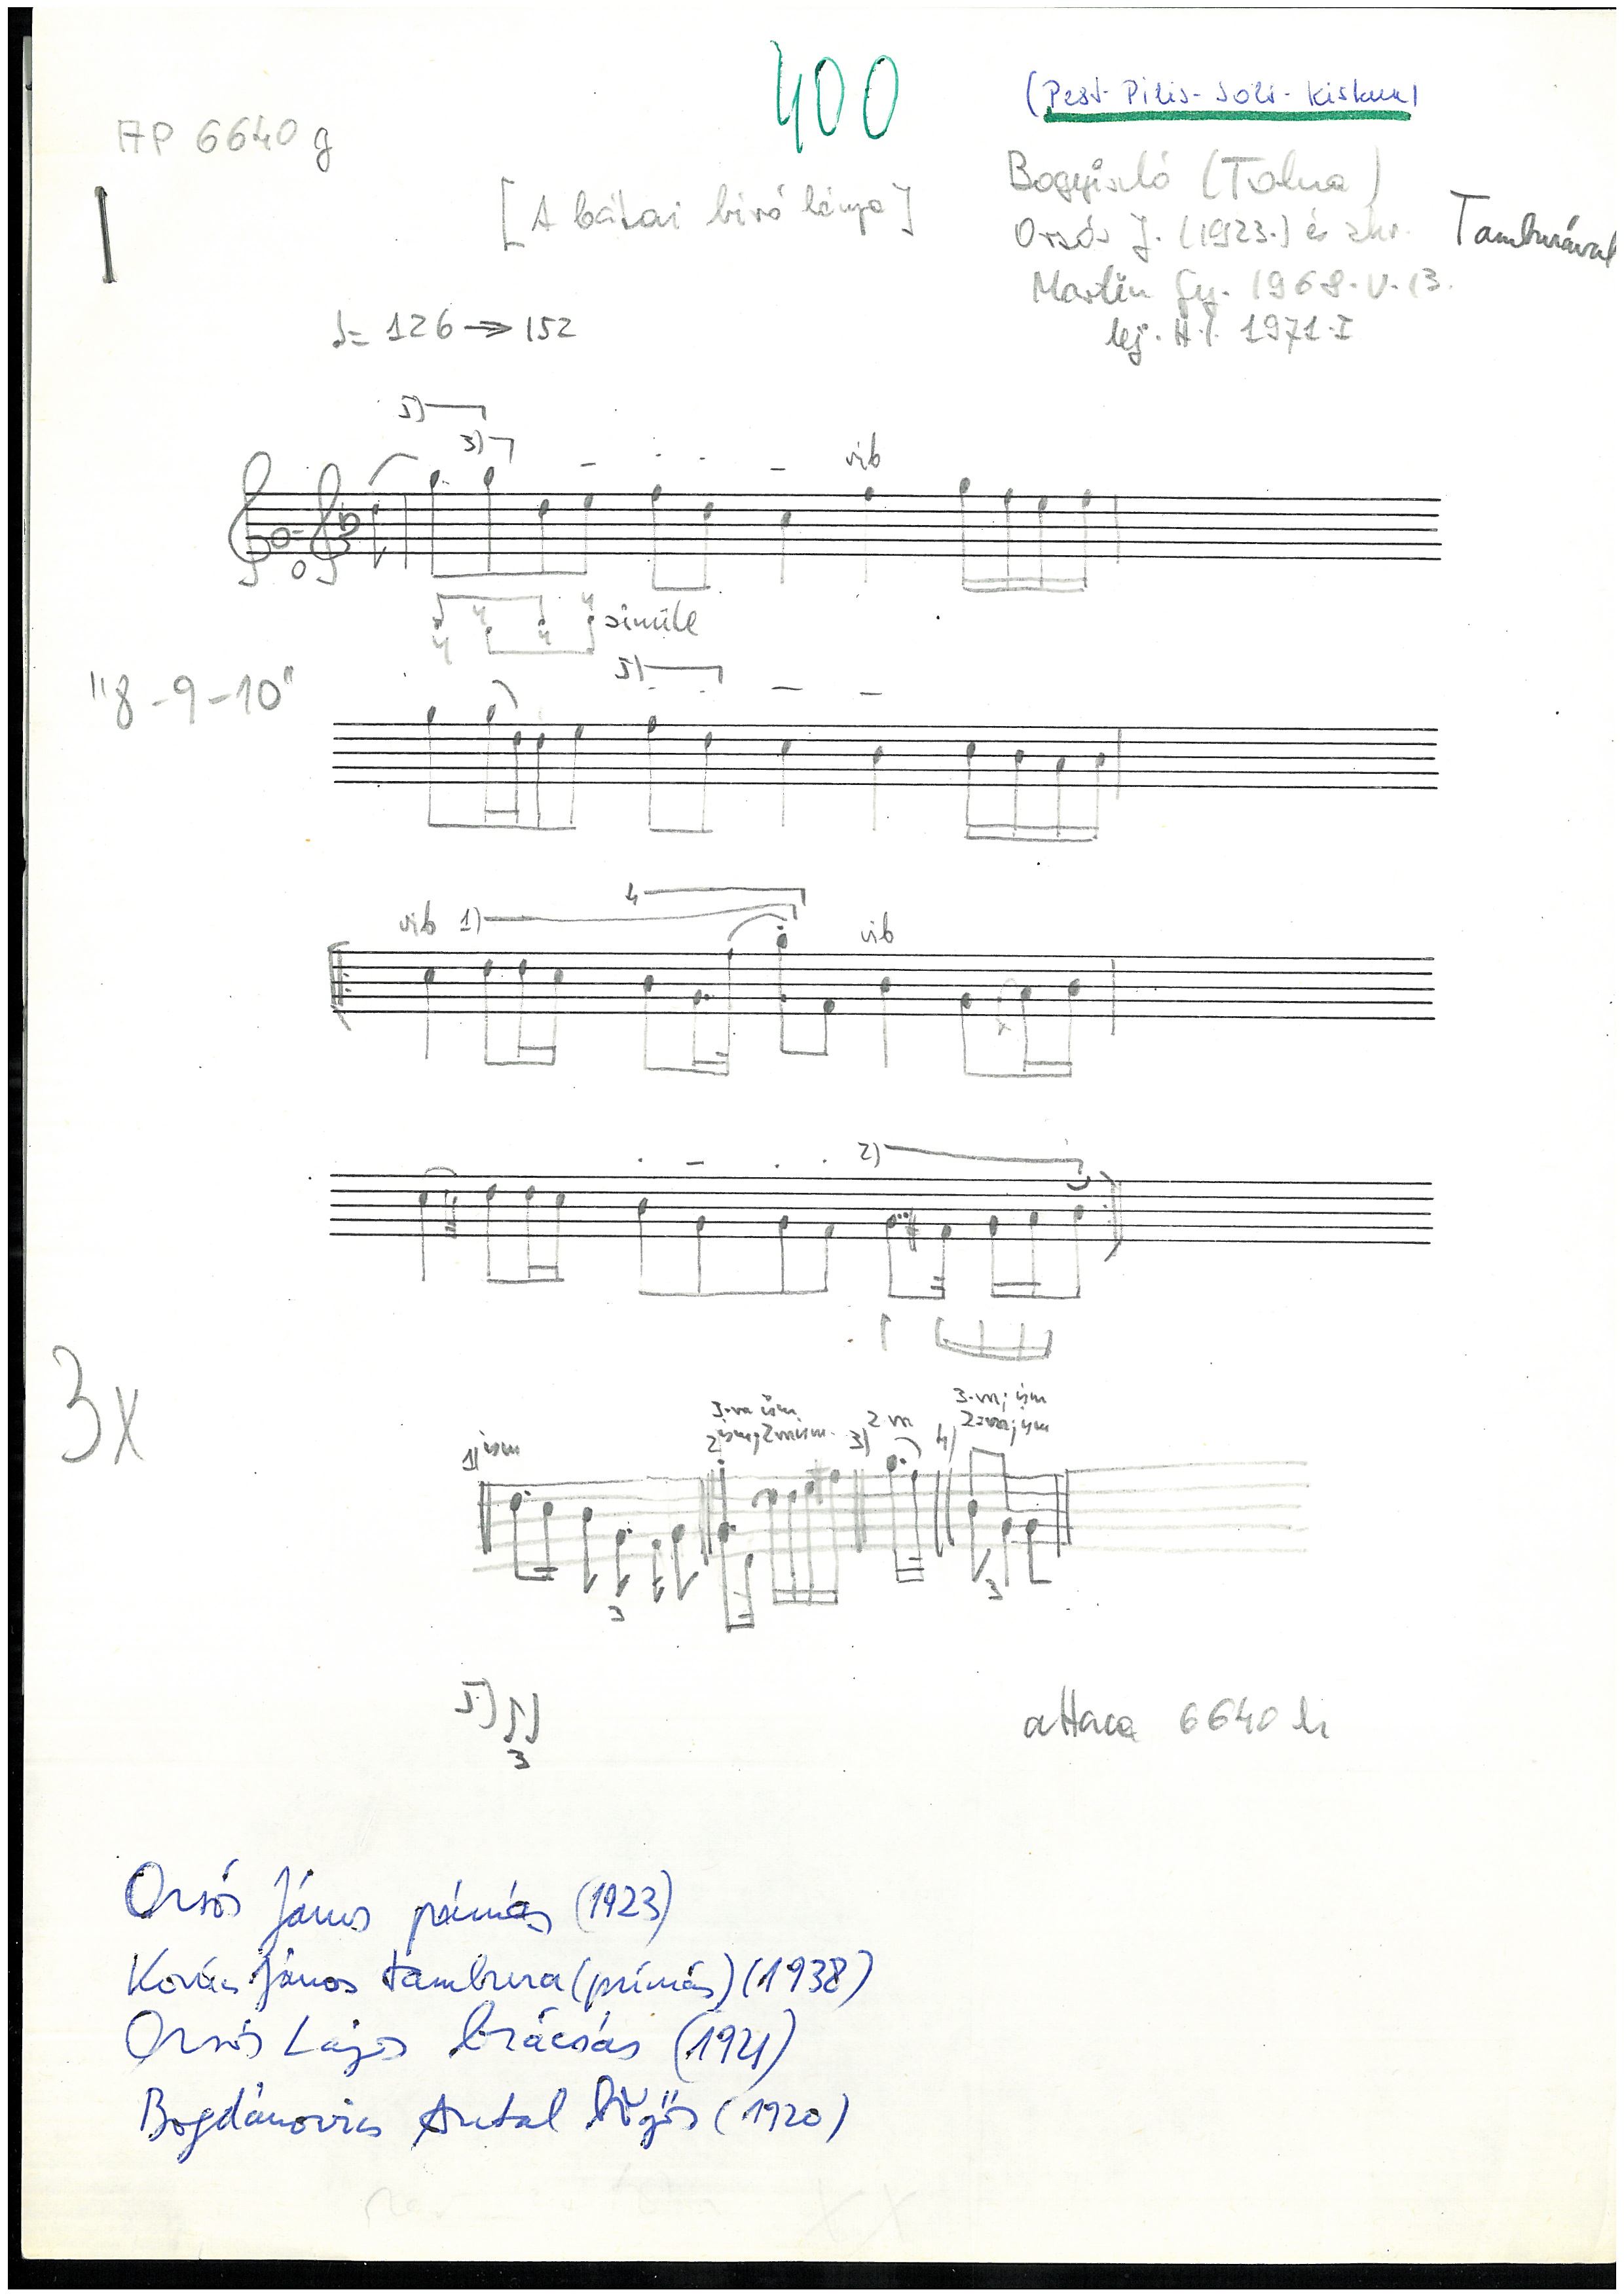 400
(Pest-Pilis-Solt-Kiskun)
AP 6640 g
I
[A bátai biró lánya]
Bogyiszló (Tolna)
Orsós J. (1923.) és zkr. Tamburával
Martin Gy. 1968.V.13.
lej. H.I. 1971.I
♩= 126 → 152
5)
3)
vib
simile
5)
"8-9-10"
4
vib 1) vib
2)
3x
3-m; ism
2 m 2-m; ism
1) ism 2) 3) 4)
3 3
5)
3
attaca 6640 h
Orsós János prímás (1923)
Kovács János tambura (prímás) (1938)
Orsós Lajos brácsás (1921)
Bogdánovics Antal bőgős (1920)